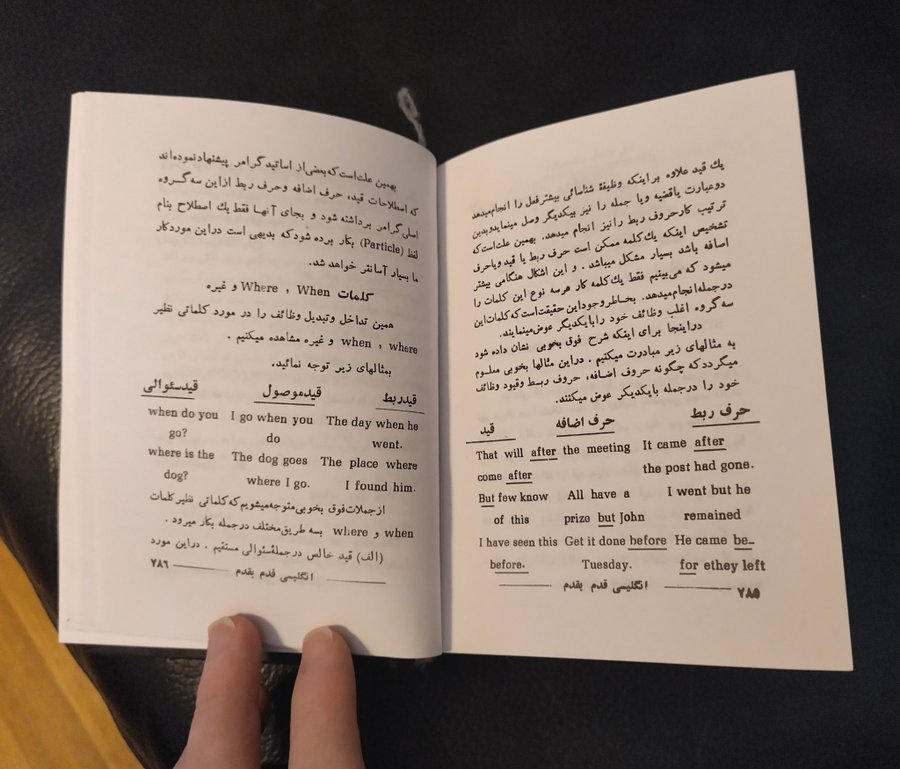 یك قید علاوه براینکه وظیفهٔ شناسائی بیشتر فعل را انجام میدهد
دوعبارت یاقضیه ویا جمله را نیز بیکدیگر وصل مینماید وبدین
ترتیب کار حروف ربط رانیز انجام میدهد. بهمین علت است که
تشخیص اینکه یك کلمه ممکن است حرف ربط یا قید ویاحرف
اضافه باشد بسیار مشکل میباشد . و این اشکال هنگامی بیشتر
میشود که می‌بینیم فقط یك کلمه کار هرسه نوع این کلمات را
درجمله انجام میدهد. بخاطر وجود این حقیقت است که کلمات این
سه گروه اغلب وظائف خود را بایکدیگر عوض مینمایند.
دراینجا برای اینکه شرح فوق بخوبی نشان داده شود
به مثالهای زیر مبادرت میکنیم . دراین مثالها بخوبی معلوم
میگردد که چگونه حروف اضافه، حروف ربط وقیود وظائف
خود را درجمله بایکدیگر عوض میکنند.
حرف ربط حرف اضافه قید
That will after the meeting It came after
come after the post had gone.
But few know All have a I went but he
of this prize but John remained
I have seen this Get it done before He came be-
before. Tuesday. for ethey left
۷۸۵ انگلیسی قدم بقدم
بهمین علت است که بعضی از اساتید گرامر پیشنهاد نموده‌اند
که اسطلاحات قید، حرف اضافه وحرف ربط ازاین سه گروه
اسلی گرامر برداشته شود و بجای آنها فقط یك اصطلاح بنام
لفظ (Particle) بکار برده شود که بدیهی است دراین موردکار
ما بسیار آسانتر خواهد شد.
کلمات Where , When و غیره
همین تداخل وتبدیل وظائف را در مورد کلماتی نظیر
when , where و غیره مشاهده میکنیم .
بمثالهای زیر توجه نمائید.
قیدربط قیدموصول قیدسئوالی
when do you I go when you The day when he
go? do went.
where is the The dog goes The place where
dog? where I go. I found him.
ازجملات فوق بخوبی متوجه میشویم که کلماتی نظیر کلمات
when و where بسه طریق مختلف درجمله بکار میرود .
(الف) قید خالس درجملهٔ سئوالی مستقیم . دراین مورد
انگلیسی قدم بقدم ۷۸۶